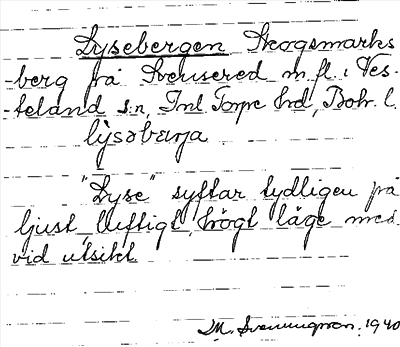 Lysebergen Skogsmarks
-berg på Svensered m.fl. i Väs-
-teland sn, Inl Torpe hd, Boh. l.
lysəbærja
"Lyse" syftar tydligen på
ljust, luftigt, högt läge med
vid utsikt.
M. Svenungsson. 1940